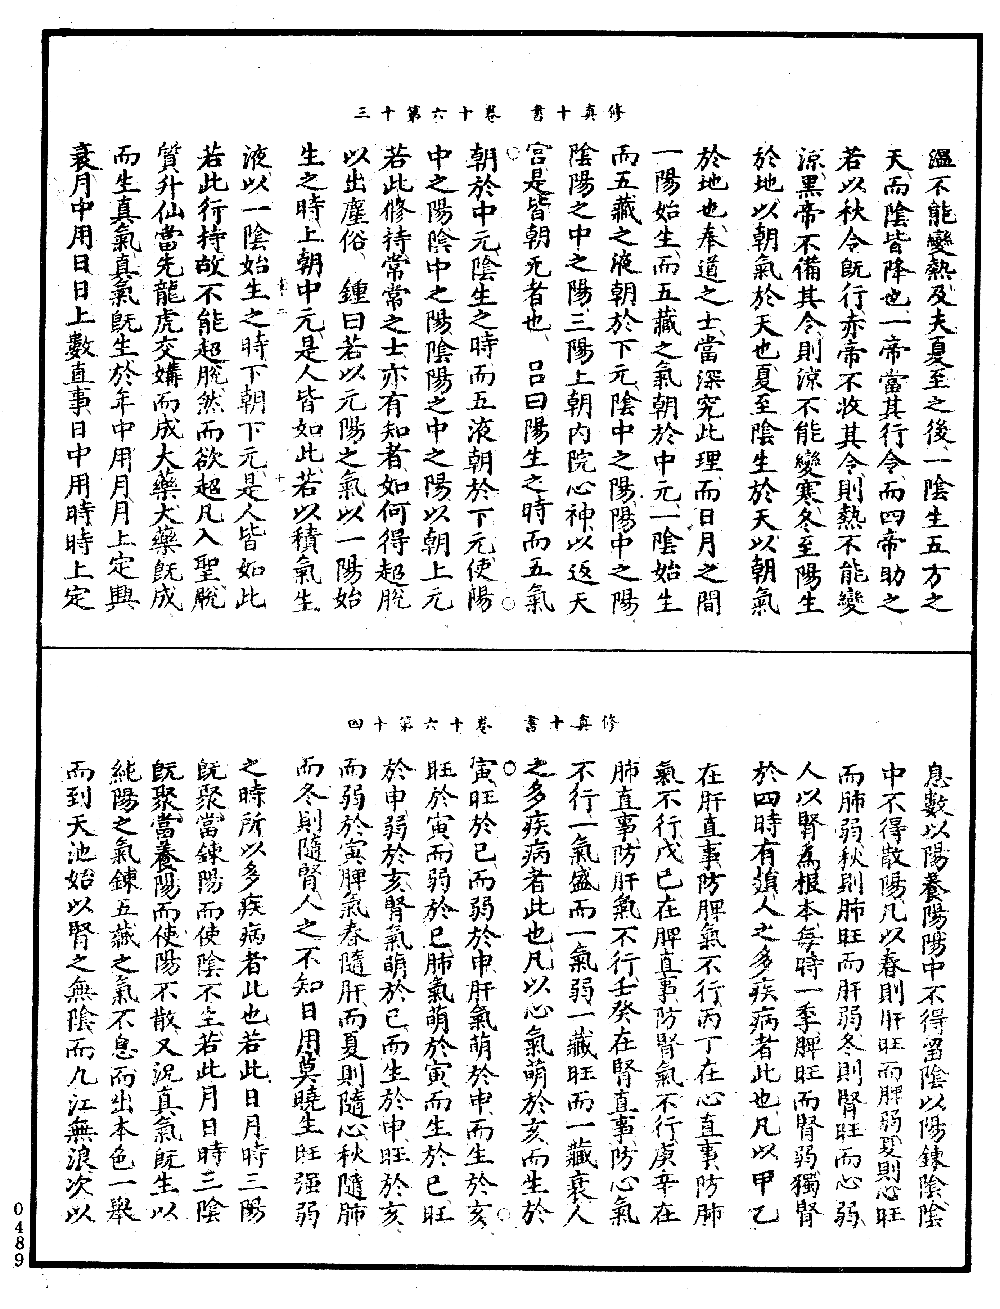 修真十書　卷十六第十三
溫不能變熱及夫夏至之後一陰生五方之
天而陰皆降也一帝當其行令而四帝助之
若以秋令既行赤帝不收其令則熱不能變
涼黑帝不備其令則涼不能變寒冬至陽生
於地以朝氣於天也夏至陰生於天以朝氣
於地也奉道之士當深究此理而日月之間
一陽始生而五藏之氣朝於中元一陰始生
而五藏之液朝於下元陰中之陽陽中之陽
陰陽之中之陽三陽上朝內院心神以返天
宮是皆朝元者也　呂曰陽生之時而五氣
朝於中元陰生之時而五液朝於下元使陽
中之陽陰中之陽陰陽之中之陽以朝上元
若此修持常常之士亦有知者如何得超脫
以出塵俗　鍾曰若以元陽之氣以一陽始
生之時上朝中元是人皆如此若以積氣生
液以一陰始生之時下朝下元是人皆如此
若此行持故不能超脫然而欲超凡入聖脫
質升仙當先龍虎交媾而成大藥大藥既成
而生真氣真氣既生於年中用月月上定興
衰月中用日日上數直事日中用時時上定
修真十書　卷十六第十四
息數以陽養陽陽中不得留陰以陽鍊陰陰
中不得散陽凡以春則肝旺而脾弱夏則心旺
而肺弱秋則肺旺而肝弱冬則腎旺而心弱
人以腎為根本每時一季脾旺而腎弱獨腎
於四時有損人之多疾病者此也凡以甲乙
在肝直事防脾氣不行丙丁在心直事防肺
氣不行戊己在脾直事防腎氣不行庚辛在
肺直事防肝氣不行壬癸在腎直事防心氣
不行一氣盛而一氣弱一藏旺而一藏衰人
之多疾病者此也凡以心氣萌於亥而生於
寅旺於巳而弱於申肝氣萌於申而生於亥
旺於寅而弱於巳肺氣萌於寅而生於巳旺
於申弱於亥腎氣萌於巳而生於申旺於亥
而弱於寅脾氣春隨肝而夏則隨心秋隨肺
而冬則隨腎人之不知日用莫曉生旺强弱
之時所以多疾病者此也若此日月時三陽
既聚當鍊陽而使陰不生若此月日時三陰
既聚當養陽而使陽不散又況真氣既生以
純陽之氣鍊五藏之氣不息而出本色一舉
而到天池始以腎之無陰而九江無浪次以
0489